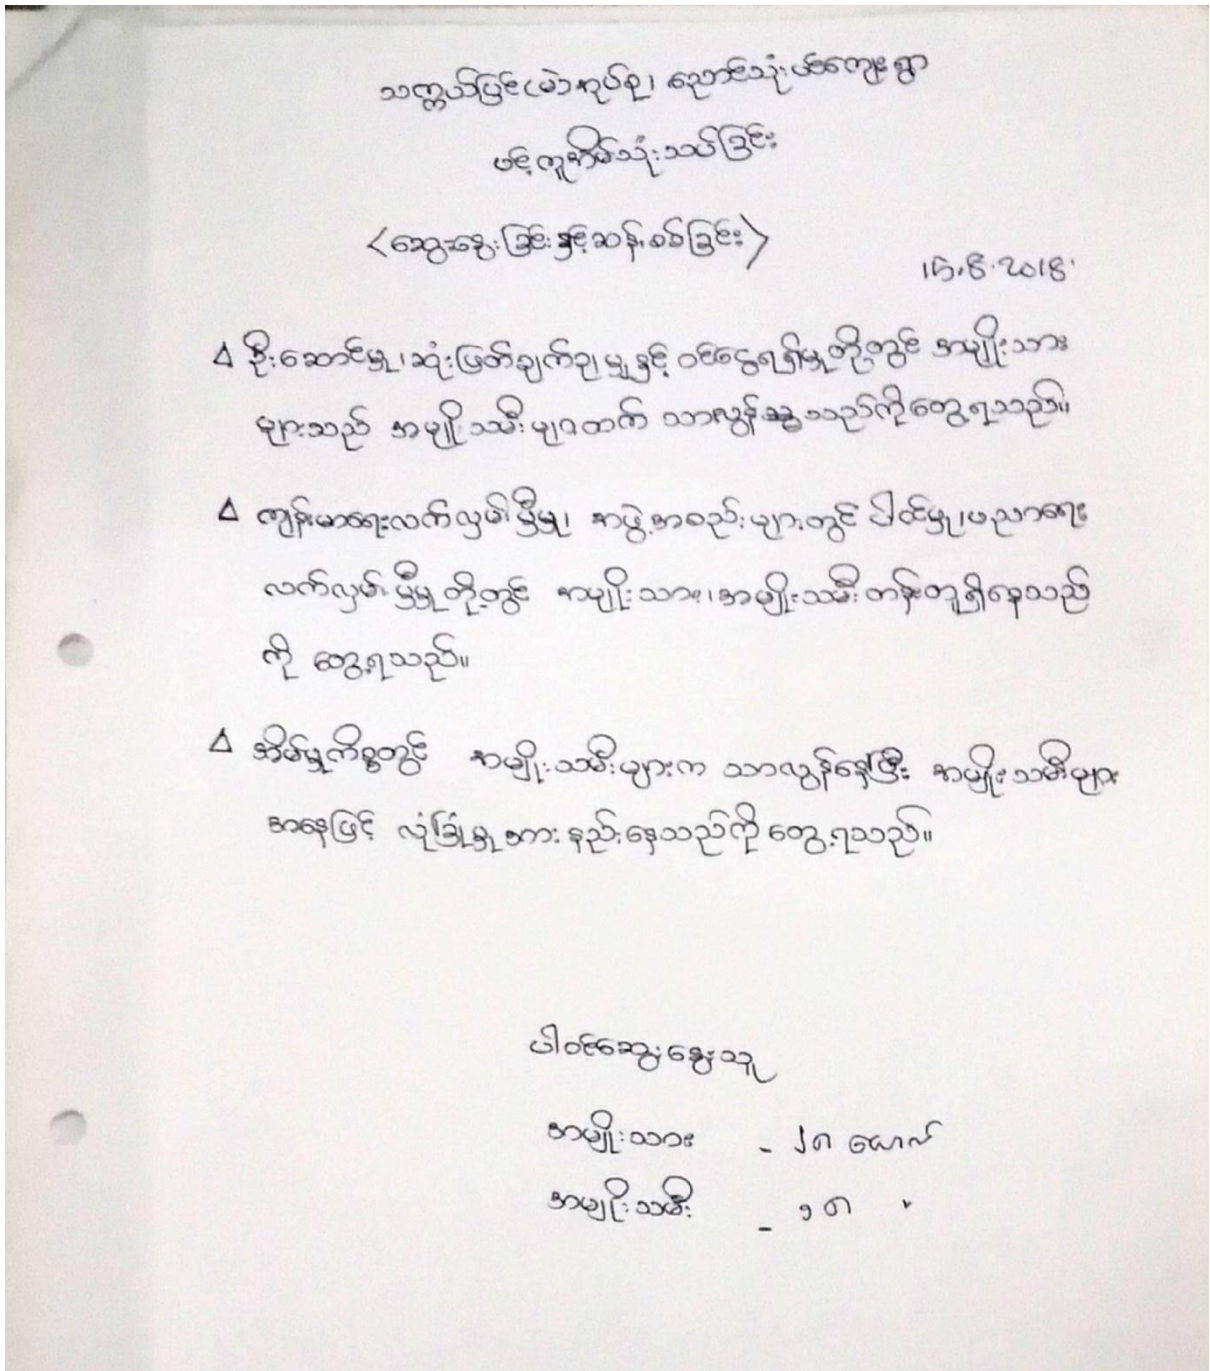 သက္ကယ်ပြင်(မဲ)အုပ်စု၊ ညောင်သုံးပင်ကျေးရွာ
ပင့်ကူအိမ်သုံးသပ်ခြင်း
〈ဆွေးနွေးခြင်းနှင့်ဆန်းစစ်ခြင်း〉
15.8.2018.
Δ ဦးဆောင်မှု၊ ဆုံးဖြတ်ချက်ချမှုနှင့် ဝင်ငွေရရှိမှုတို့တွင် အမျိုးသား
များသည် အမျိုးသမီးများထက် သာလွန်နေသည်ကိုတွေ့ရသည်။
Δ ကျန်းမာရေးလက်လှမ်းမှီမှု၊ အဖွဲ့အစည်းများတွင် ပါဝင်မှု၊ ပညာရေး
လက်လှမ်းမှီမှုတို့တွင် အမျိုးသား၊ အမျိုးသမီး တန်းတူရှိနေသည်
ကို တွေ့ရသည်။
Δ အိမ်မှုကိစ္စတွင် အမျိုးသမီးများက သာလွန်နေပြီး အမျိုးသမီးများ
အနေဖြင့် လုံခြုံမှုအား နည်းနေသည်ကို တွေ့ရသည်။
ပါဝင်ဆွေးနွေးသူ
အမျိုးသား - ၂၈ ယောက်
အမျိုးသမီး - ၁၈ "